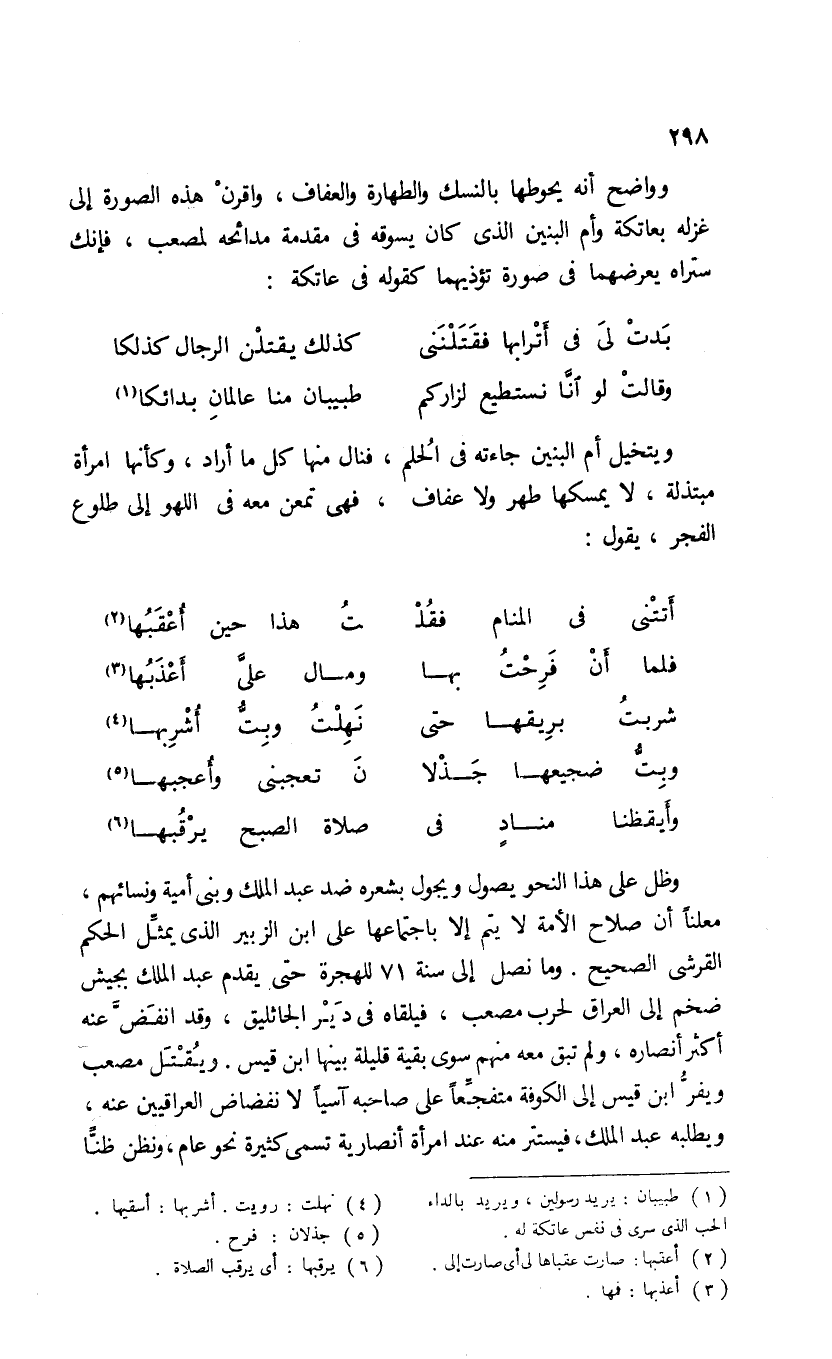 ٢٩٨
وواضح أنه يحوطها بالنسك والطهارة والعفاف ، واقرنْ هذه الصورة إلى
غزله بعاتكة وأم البنين الذى كان يسوقه فى مقدمة مدائحه لمصعب ، فإنك
ستراه يعرضهما فى صورة تؤذيهما كقوله فى عاتكة :
بَدتْ لىَ فى أَتْرابها فقَتَلْنَنى كذلك يقتلْن الرجال كذلكا
وقالتْ لو ٱنَّا نستطيع لزاركم طبيبان منا عالمانِ بدائكا(١)
ويتخيل أم البنين جاءته فى الحُلم ، فنال منها كل ما أراد ، وكأنها امرأة
مبتذلة ، لا يمسكها طهر ولا عفاف ، فهى تمعن معه فى اللهو إلى طلوع
الفجر ، يقول :
أَتتْنى فى المنام فقُلْ تُ هذا حين أُعْقَبُها(٢)
فلما أَنْ فَرِحْتُ بها ومال علىَّ أَعْذَبُها(٣)
شربتُ بريقها حتى نَهِلْتُ وبِتُّ أُشْرِبها(٤)
وبِتُّ ضجيعها جَذْلا نَ تعجبنى وأُعجبها(٥)
وأَيقظنا منادٍ فى صلاة الصبح يرْقُبها(٦)
وظل على هذا النحو يصول ويجول بشعره ضد عبد الملك وبنى أمية ونسائهم ،
معلناً أن صلاح الأمة لا يتم إلا باجتماعها على ابن الزبير الذى يمثِّل الحكم
القرشى الصحيح . وما نصل إلى سنة ٧١ للهجرة حتى يقدم عبد الملك بجيش
ضخم إلى العراق لحرب مصعب ، فيلقاه فى دَيْر الجاثليق ، وقد انفَضَّ عنه
أكثر أنصاره ، ولم تبق معه منهم سوى بقية قليلة بينها ابن قيس . ويُقْتَل مصعب
ويفرُّ ابن قيس إلى الكوفة متفجِّعاً على صاحبه آسياً لانفضاض العراقيين عنه ،
ويطلبه عبد الملك، فيستتر منه عند امرأة أنصارية تسمى كثيرة نحو عام، ونظن ظنًّا
(١) طبيبان : يريد رسولين ، ويريد بالداء
الحب الذى سرى فى نفس عاتكة له .
(٢) أعقبها: صارت عقباها لى أى صارت إلى .
(٣) أعذبها : فها .
(٤) نهلت : رويت . أشربها : أسقيها .
(٥) جذلان : فرح .
(٦) يرقبها : أى يرقب الصلاة .